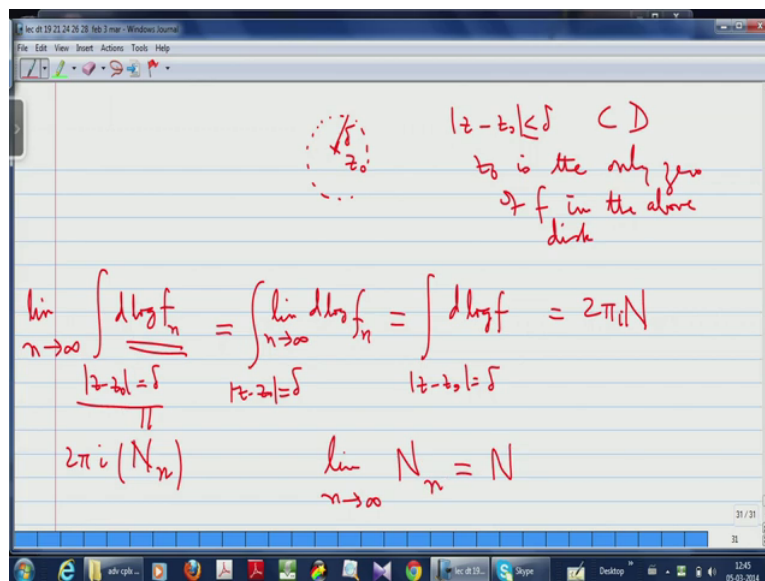 lec dt 19 21 24 26 28 feb 3 mar - Windows Journal
File Edit View Insert Actions Tools Help
δ
z₀
|z - z₀| ≤ δ ⊂ D
z₀ is the only zero
of f in the above
disk
lim n→∞ ∫ |z-z₀|=δ d log fₙ = ∫ |z-z₀|=δ lim n→∞ d log fₙ = ∫ |z-z₀|=δ d log f = 2πiN
2πi (Nₙ) lim n→∞ Nₙ = N
31 / 31
31
adv cplx ...
lec dt 19...
Skype
Desktop
12:45
05-03-2014